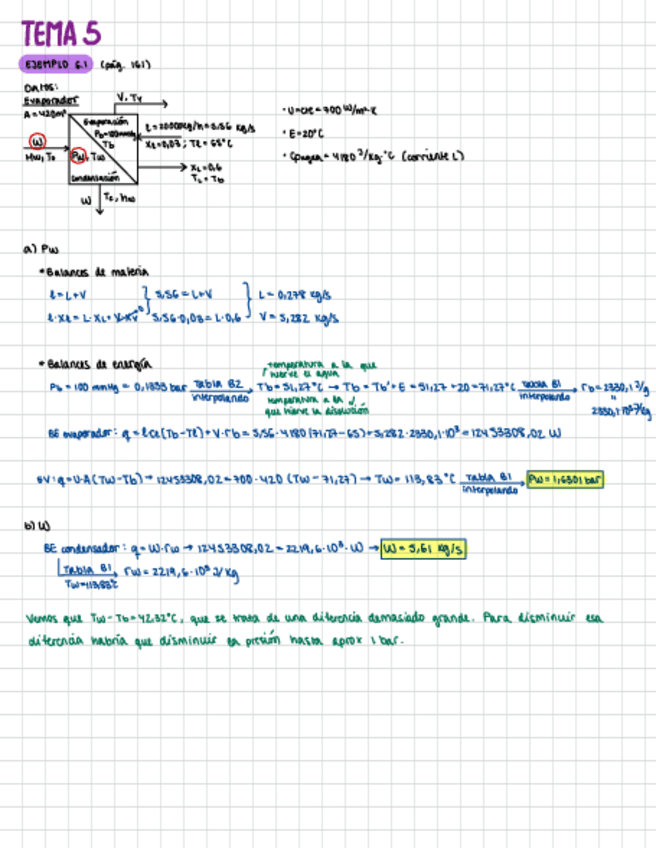 TEMA 5
EJEMPLO 6.1 (pág. 161)
Datos:
Evaporador
A=420m²
V, Tv
Evaporación
Pb=100mmHg
Tb
l=20000kg/h=5,56 kg/s
Xl=0,03; Tl=65°C
W
Hw, To
Pw, Tw
Condensación
XL=0,6
TL=Tb
W
Tc, hw
· U=cte=700 W/m²·K
· E=20°C
· Cpagua=4180 J/kg·°C (corriente L)
a) Pw
*Balances de materia
l=L+V } 5,56=L+V } L=0,278 kg/s
l·Xl=L·XL+V·Xv 0 } 5,56·0,03=L·0,6 } V=5,282 kg/s
* Balances de energía
temperatura a la que hierve el agua
Pb=100 mmHg = 0,1333 bar Tabla B2 interpolando → Tb'=51,27°C → Tb=Tb'+E=51,27+20=71,27°C Tabla B1 interpolando → rb=2330,1 J/g
temperatura a la que hierve la disolución
2330,1·10³J/kg
BE evaporador: q=lcl(Tb-Tl)+V·rb=5,56·4180(71,27-65)+5,282·2330,1·10³=12453308,02 W
EV: q=U·A(Tw-Tb)→12453308,02=700·420 (Tw-71,27) → Tw=113,83°C Tabla B1 interpolando → Pw=1,6301 bar
b) W
BE condensador: q=W·rw → 12453308,02=2219,6·10³·W → W=5,61 kg/s
Tabla B1 Tw=113,83°C → rw=2219,6·10³ J/kg
Vemos que Tw-Tb=42,32°C, que se trata de una diferencia demasiado grande. Para disminuir esa
diferencia habría que disminuir la presión hasta aprox 1 bar.